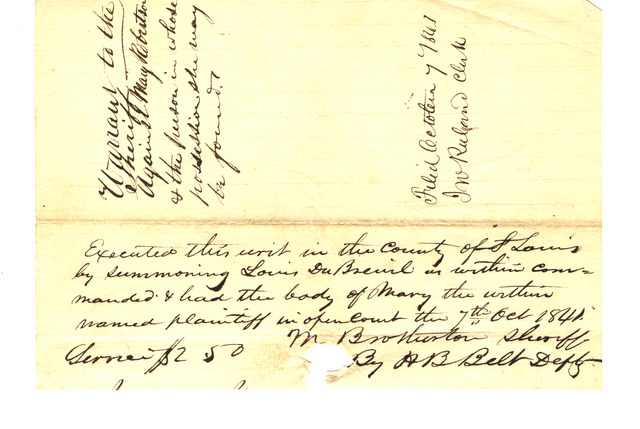 Warrant to the
Sheriff
Against Mary Robertson
& the person in whose
possession she may
be found.
Filed October 7 1841
J W Ruland Clerk
Executed this writ in the County of St Louis
by summoning Louis DuBreuil as within com=
manded & had the body of Mary the within
named plaintiff in open Court the 7th Oct 1841.
M. Brotherton Sheriff
Service $2 50
By A B Belt Depty